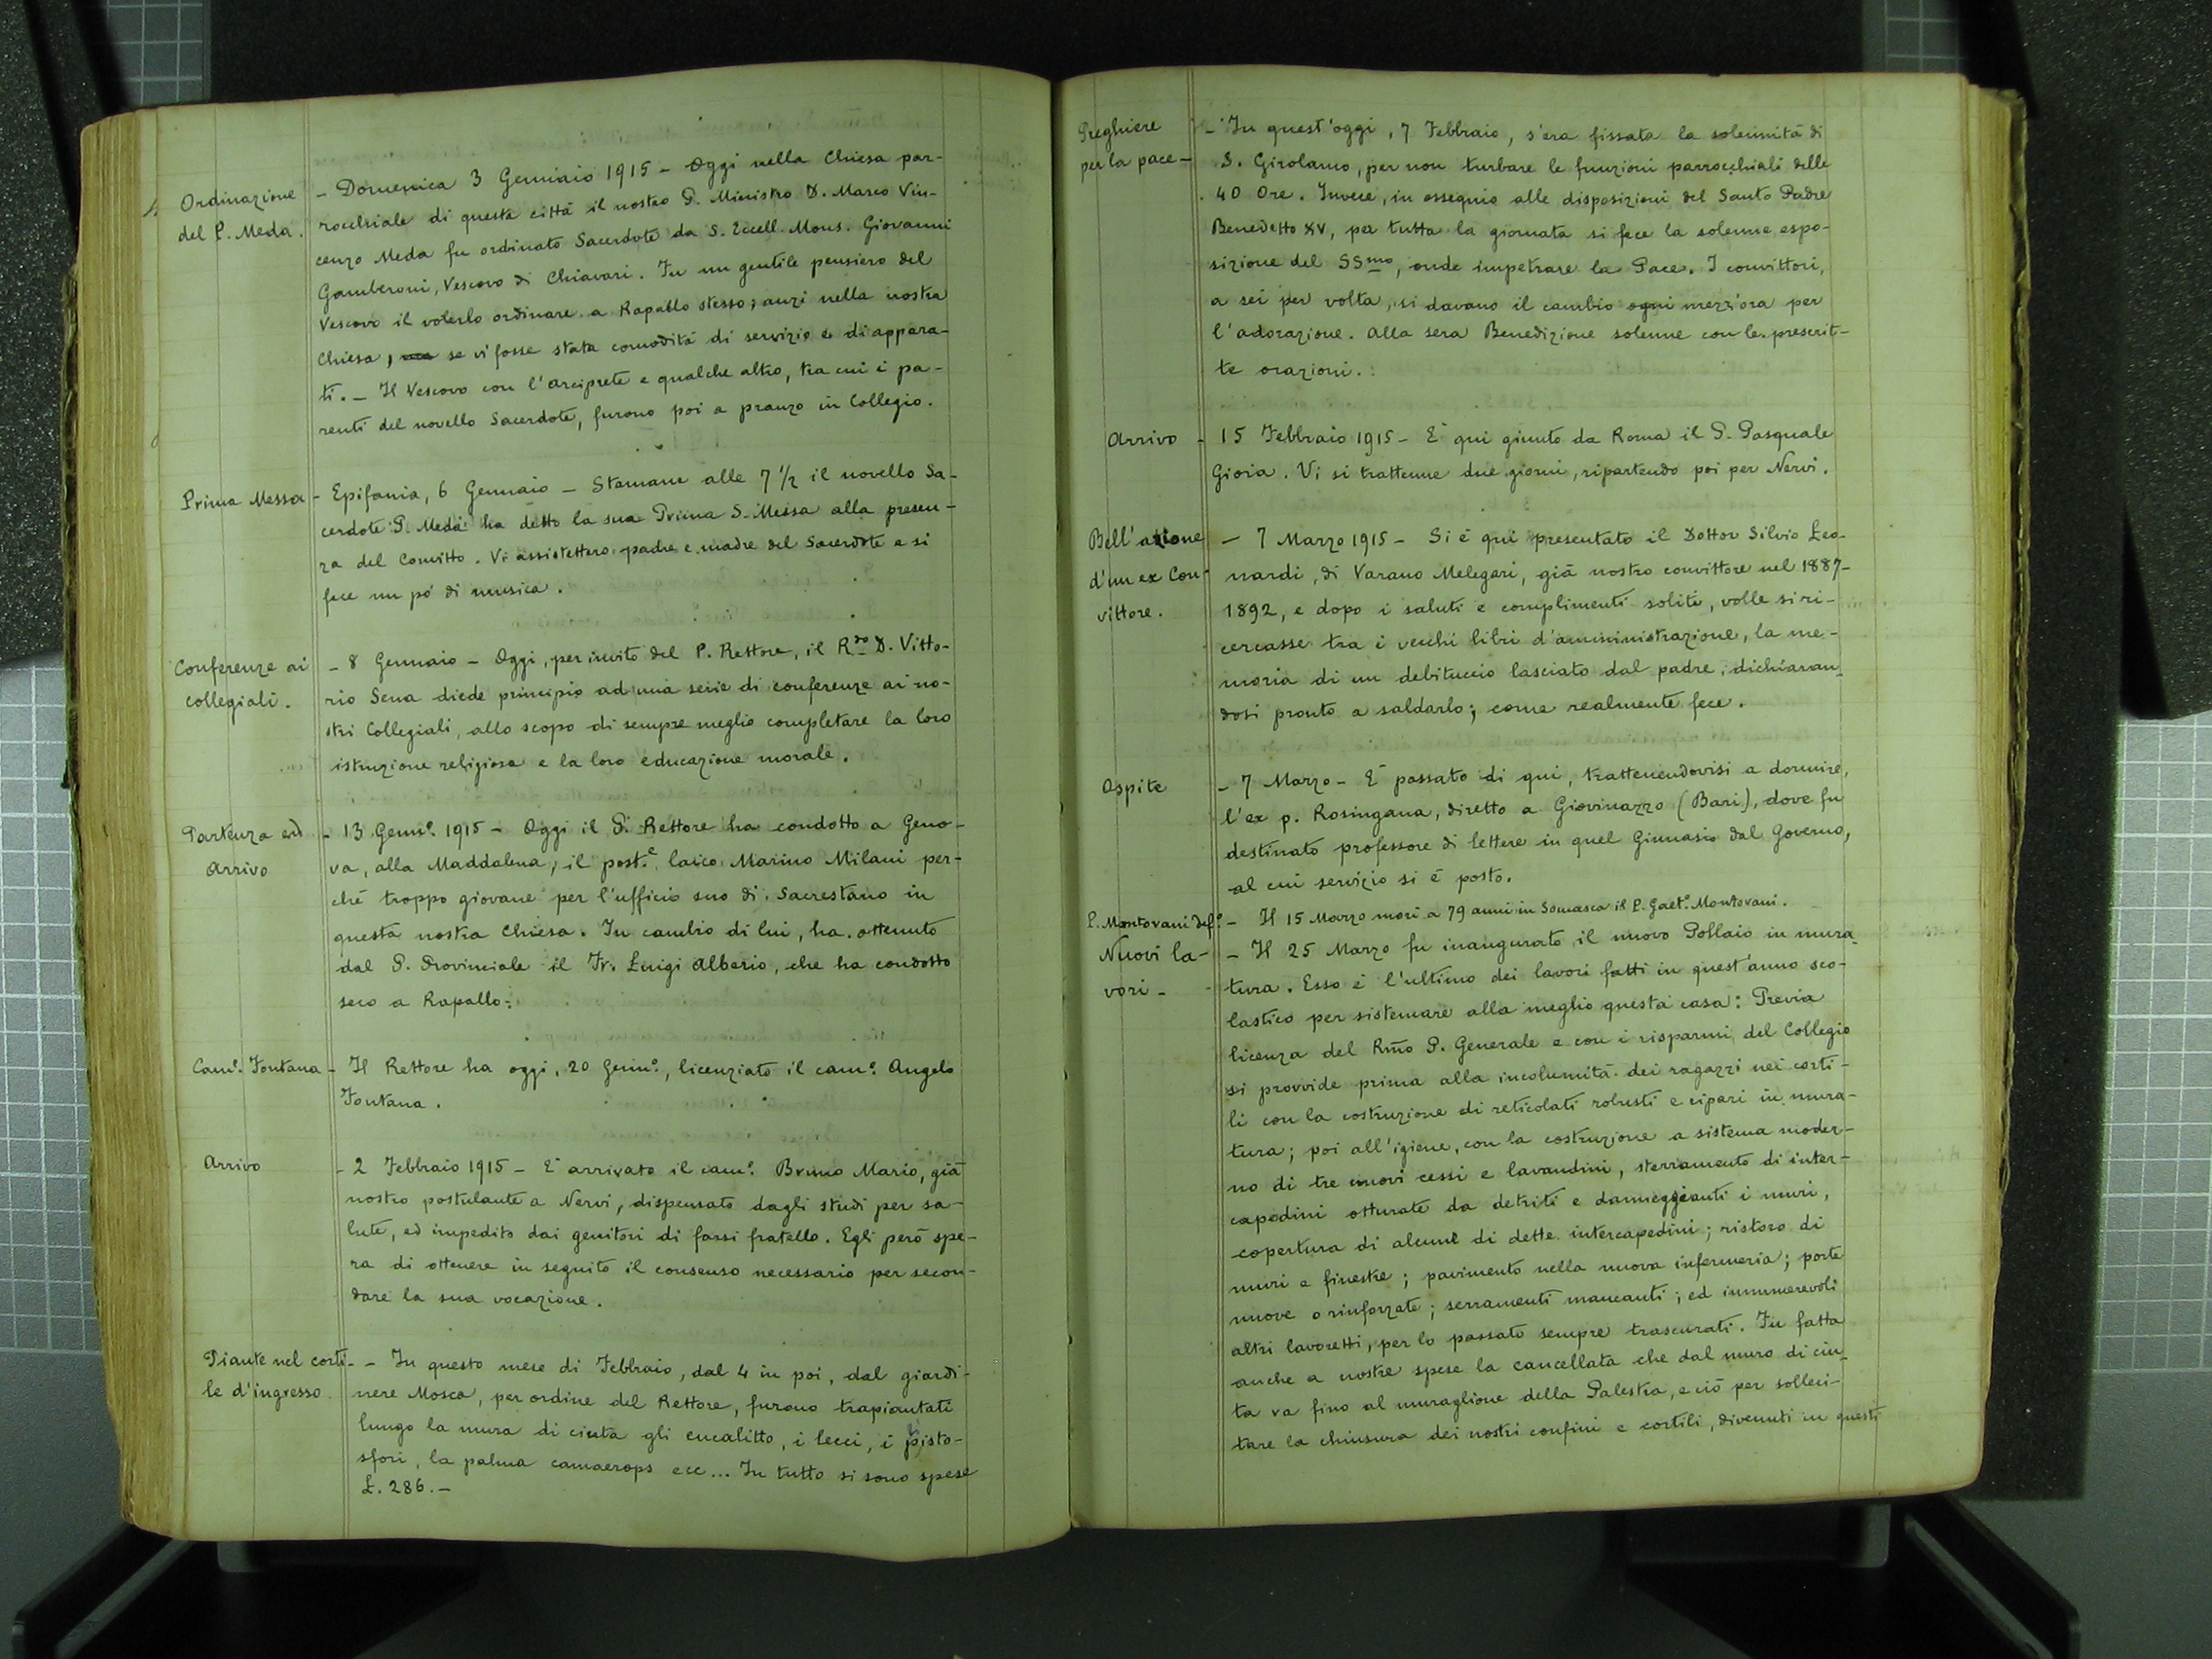 Ordinazione
del P. Meda.
- Domenica 3 Gennaio 1915 - Oggi nella Chiesa par-
rocchiale di questa città il nostro P. Ministro D. Marco Vin-
cenzo Meda fu ordinato Sacerdote da S. Eccell. Mons. Giovanni
Gamberoni, Vescovo di Chiavari. Fu un gentile pensiero del
Vescovo il volerlo ordinare a Rapallo stesso; anzi nella nostra
Chiesa, se vi fosse stata comodità di servizio e di appara-
ti. - Il Vescovo con l'arciprete e qualche altro, tra cui i pa-
renti del novello Sacerdote, furono poi a pranzo in Collegio.
Prima Messa
- Epifania, 6 Gennaio - Stamane alle 7 1/2 il novello Sa-
cerdote P. Meda ha detto la sua Prima S. Messa alla presen-
za del Convitto. Vi assistettero padre e madre del Sacerdote e si
fece un pò di musica.
Conferenze ai
collegiali.
- 8 Gennaio - Oggi, per invito del P. Rettore, il R.do D. Vitto-
rio Sena diede principio ad una serie di conferenze ai no-
stri Collegiali, allo scopo di sempre meglio completare la loro
istruzione religiosa e la loro educazione morale.
Partenza ed
Arrivo
- 13 Genn.o 1915 - Oggi il P. Rettore ha condotto a Geno-
va, alla Maddalena, il post.e laico Marino Milani per-
chè troppo giovane per l'ufficio suo di Sacrestano in
questa nostra Chiesa. In cambio di lui, ha ottenuto
dal P. Provinciale il Fr. Luigi Alberio, che ha condotto
seco a Rapallo.
Cam.e Fontana
- Il Rettore ha oggi, 20 Genn.o, licenziato il cam.e Angelo
Fontana.
Arrivo
- 2 Febbraio 1915 - È arrivato il cam.e Bruno Mario, già
nostro postulante a Nervi, dispensato dagli studi per sa-
lute, ed impedito dai genitori di farsi fratello. Egli però spe-
ra di ottenere in seguito il consenso necessario per secon-
dare la sua vocazione.
Piante nel corti-
le d'ingresso
- In questo mese di Febbraio, dal 4 in poi, dal giardi-
nere Mosca, per ordine del Rettore, furono trapiantati
lungo la mura di cinta gli eucalitto, i lecci, i pisto-
sfori, la palma camaerops ecc... In tutto si sono spese
L. 286.-
Preghiere
per la pace -
- In quest'oggi, 7 Febbraio, s'era fissata la solennità di
S. Girolamo, per non turbare le funzioni parrocchiali delle
40 Ore. Invece, in ossequio alle disposizioni del Santo Padre
Benedetto XV, per tutta la giornata si fece la solenne espo-
sizione del SSmo, onde impetrare la Pace. I convittori,
a sei per volta, si davano il cambio ogni mezz'ora per
l'adorazione. Alla sera Benedizione solenne con le prescrit-
te orazioni.
Arrivo
- 15 Febbraio 1915 - È qui giunto da Roma il P. Pasquale
Gioia. Vi si trattenne due giorni, ripartendo poi per Nervi.
Bell'azione
d'un ex Con-
vittore.
- 7 Marzo 1915 - Si è qui presentato il Dottor Silvio Leo-
nardi, di Varano Melegari, già nostro convittore nel 1887-
1892, e dopo i saluti e complimenti soliti, volle si ri-
cercasse tra i vecchi libri d'amministrazione, la me-
moria di un debituccio lasciato dal padre, dichiaran-
dosi pronto a saldarlo; come realmente fece.
Ospite
- 7 Marzo - È passato di qui, trattenendovisi a dormire,
l'ex p. Rosingana, diretto a Giovinazzo (Bari), dove fu
destinato professore di lettere in quel Ginnasio dal Governo,
al cui servizio si è posto.
P. Montovani def.o
- Il 15 Marzo morì a 79 anni in Somasca il P. Gaet.o Montovani.
Nuovi la-
vori -
- Il 25 Marzo fu inaugurato il nuovo Pollaio in mura-
tura. Esso è l'ultimo dei lavori fatti in quest'anno sco-
lastico per sistemare alla meglio questa casa: Previa
licenza del Rmo P. Generale e con i risparmi del Collegio
si provvide prima alla incolumità dei ragazzi nei corti-
li con la costruzione di reticolati robusti e ripari in mura-
tura; poi all'igiene, con la costruzione a sistema moder-
no di tre nuovi cessi e lavandini, sterramento di inter-
capedini otturate da detriti e danneggianti i muri,
copertura di alcune di dette intercapedini; ristoro di
muri e finestre; pavimento nella nuova infermeria; porte
nuove o rinforzate; serramenti mancanti; ed innumerevoli
altri lavoretti, per lo passato sempre trascurati. Fu fatta
anche a nostre spese la cancellata che dal muro di cin-
ta va fino al muraglione della Palestra, e ciò per solleci-
tare la chiusura dei nostri confini e cortili, divenuti in questi